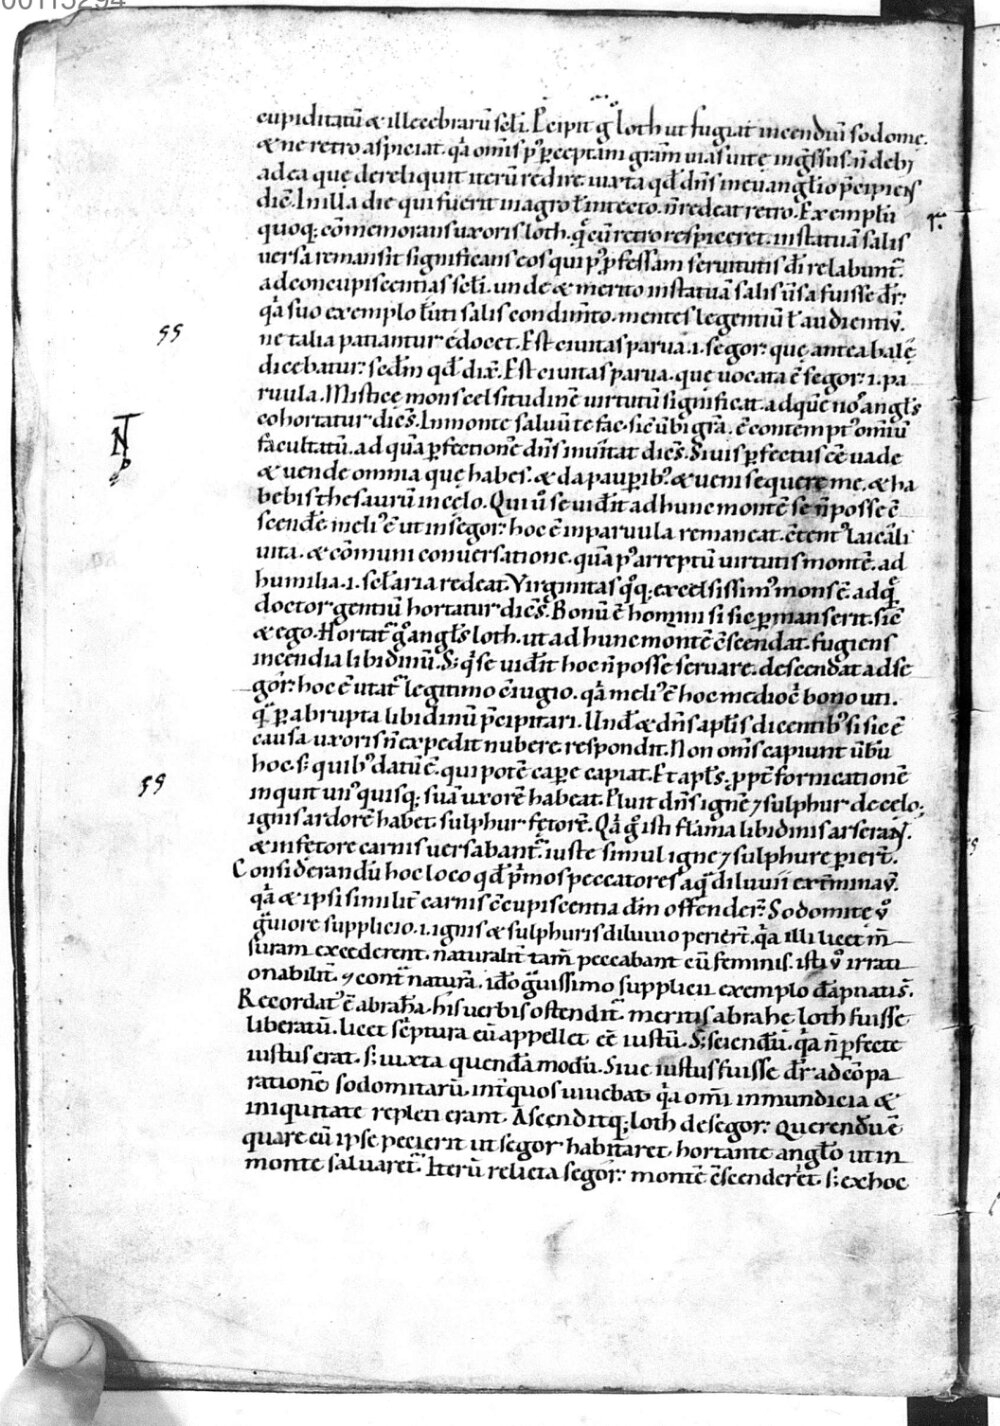 00115294
cupiditatū & illecebrarū sc̄li. P̄cipit ḡ loth ut fugiat incendiū sodomę.
& ne retro aspiciat. qa om̄is p' p̄ceptam grām uias uitę ingssus. n̄ debȝ
ad ea quę dereliquit iterū redire. iuxta qđ dn̄s in euanglio p̄cipiens
dic̄. In illa die qui fuerit in agro t intecto. n̄ redeat retro. Exemplū
quoq; cōmemorans uxoris loth. q̄ cū retro respiceret. in statuā salis
uersa remansit significans eos qui p' p̄fessam seruitutis di relabunt̄.
ad concupiscentias sc̄li. unde & merito in statuā salis ūsa fuisse dr̄.
qa suo exemplo uti salis condim̄to. mentes legentiū t audientiū.
ne talia patiantur edocet. Est ciuitas parua .i. segor. quę antea balę
dicebatur. sedm qđ dix̄. Est ciuitas parua. quę uocata ē segor .i. pa
ruula. Misticę mons celsitudinē uirtutū significat. ad quē nos angls
cohortatur dicēs. In monte saluū te fac. sic ūbi gra. ē contempt' omiū
facultatū. ad quā pfectionē dn̄s inuitat dicēs. Si uis pfectus eē uade
& uende omnia quę habes. & da paupib; & ueni sequere me. & ha
bebis thesaurū in celo. Qui ū se uidit ad hunc montē se n̄ posse ē
scendē. meli' ē ut in segor. hoc ē in paruula remaneat. ētent' laicāli
uita. & cōmuni conuersatione. quā p' arreptū uirtutis montē. ad
humilia .i. sc̄laria redeat. Virginitas qq; excelsissim' mons ē. ad q̄
doctor gentiū hortatur dicēs. Bonū ē homini si sic pmanserit. sic
& ego. Hortat̄ g angls loth. ut ad hunc montē ēscendat. fugiens
incendia libidinū. S; q se uidit hoc n̄ posse seruare. descendat ad se
gor. hoc ē utat̄ legitimo ēiugio. qa meli' ē hoc mediocī bono uti.
q p abrupta libidinū p̄cipitari. Und & dn̄s aplis dicentib' si sic ē
causa uxoris n̄ expedit nubere. respondit. Non om̄s capiunt ūbū
hoc. s; quib' datū ē. qui potē cape capiat. Et apls. ppt̄ fornicationē
inquit un' quisq; suā uxorē habeat. Pluit dn̄s ignē ⁊ sulphur de celo.
ignis ardorē habet. sulphur fętorē. Qa g isti flāma libidinis arserant.
& in fetore carnis uersabant̄. iuste simul igne ⁊ sulphure piert̄.
Considerandū hoc loco qđ p̄mos peccatores aq diluuii ext̄minau.
qa & ipsi similit̄ carnis ēcupiscentia dm̄ offender̄. Sodomite ū
guiore supplicio .i. ignis & sulphuris diluuio perierт̄. qa illi licet m̄
suram excederent. naturalit̄ tam̄ peccabant cū feminis. isti ū irrati
onabilit̄. ⁊ cont̄ naturā. ido guissimo supplicii exemplo dāpnatis.
Recordat' ē abrahā. his uerbis ostendit̄. meritis abrahe loth fuisse
liberatū. licet sc̄ptura eū appellet eē iustū. S; sciendū. qa n̄ pfecte
iustus erat. s; iuxta quendā modū. Siue iustus fuisse dr̄ ad cōpa
rationē sodomitarū. int̄ quos uiuebat. qa om̄i inmundicia &
iniquitate repleti erant. Ascenditq; loth de segor. Querendū ē
quare cū ipse pecierit ut segor habitaret. hortante anglo ut in
monte saluaret̄. Iterū relicta segor. montē ēscenderēt. s; ex hoc